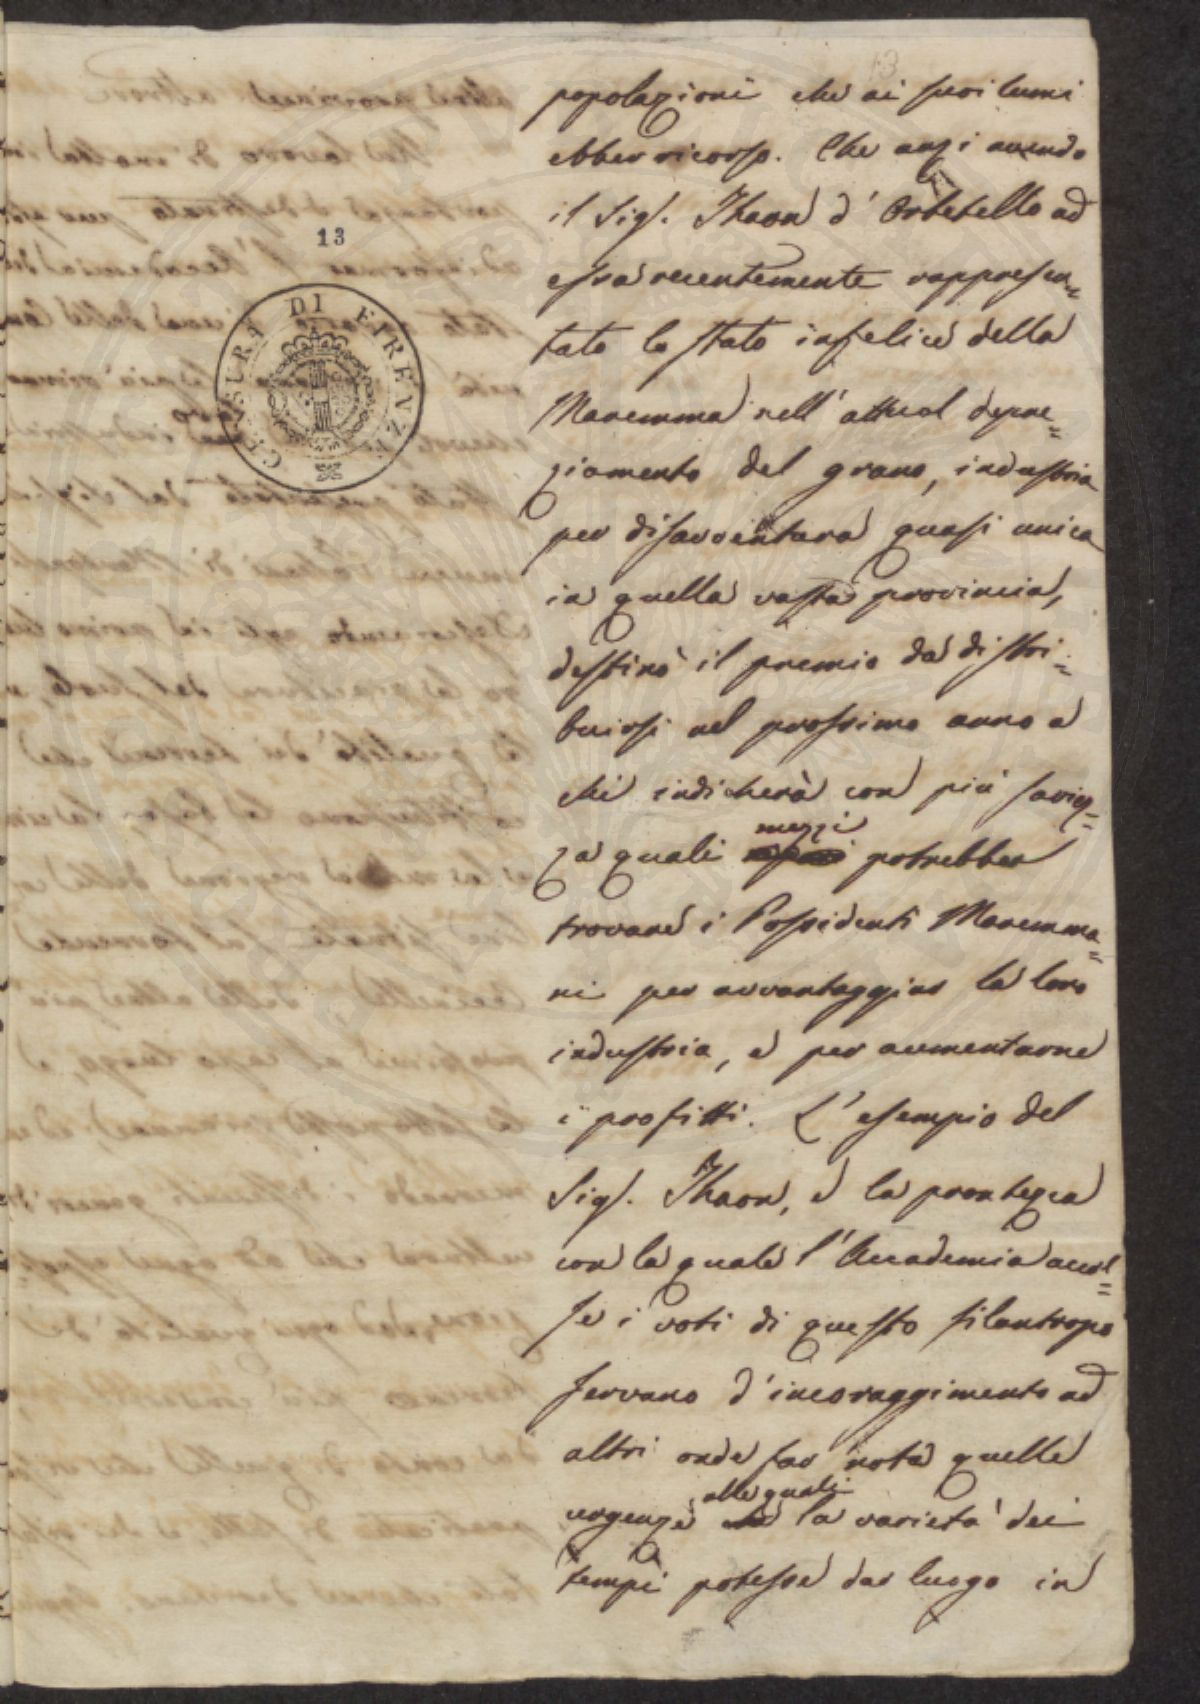 13
13
CENSURA DI FIRENZE
popolazioni che ai suoi lumi
ebber ricorso. Che anzi avendo
il Sig. Thaon d'Orbetello ad
essa recentemente rappresen=
tato lo stato infelice della
Maremma nell'attual depre=
ziamento del grano, industria
per disavventura quasi unica
in quella vasta provincia,
destinò il premio da distri=
buirsi nel prossimo anno a
chi indicherà con più saviez=
za quali mezzi potrebber
trovare i Possidenti Maremma=
ni per avvantaggiar la loro
industria, e per aumentarne
i profitti. L'esempio del
Sig. Thaon, e la prontezza
con la quale l'Accademia accol=
se i voti di questo filantropo
servano d'incoraggimento ad
altri onde far nota quelle
urgenze alle quali la varietà dei
tempi potesse dar luogo in